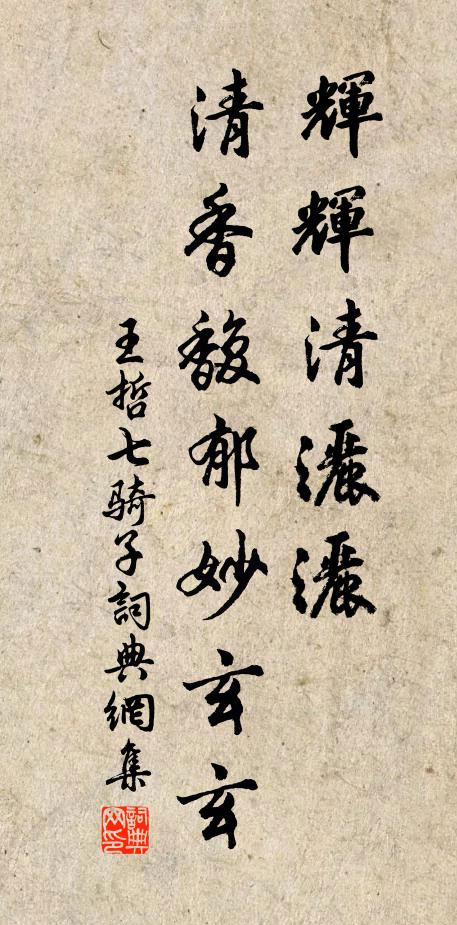 輝輝清灑灑
清香馥郁妙玄玄
王哲七骑子詞典網集
詞典网印